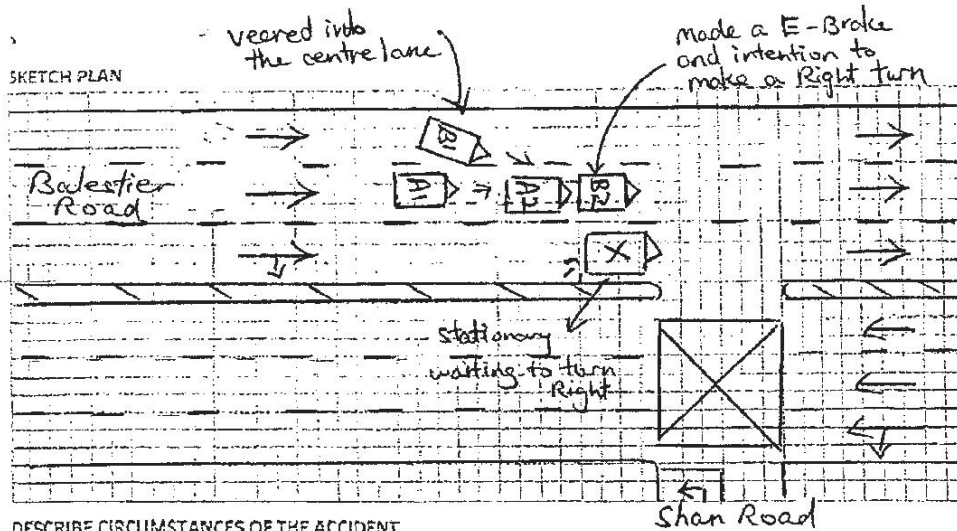 veered into
the centre lane
made a E-Brake
and intention to
make a Right turn
SKETCH PLAN
B1
Balestier
Road
A1
A2
B2
X
stationary
waiting to turn
Right
Shan Road
DESCRIBE CIRCUMSTANCES OF THE ACCIDENT